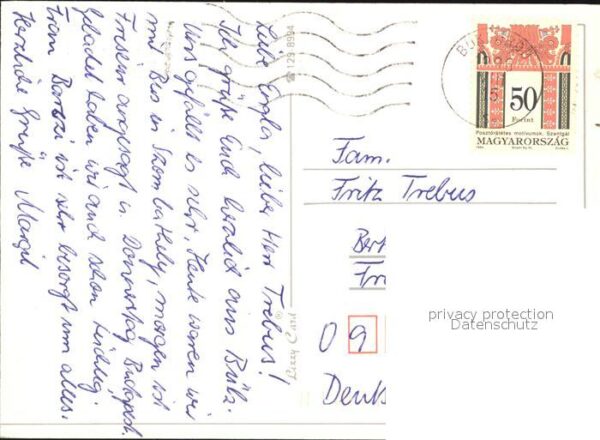 Liebe Engla, lieber Herr Trebus!
Ich grüße Euch herzlich aus Bük.
Uns gefällt es sehr. Heute waren wir
mit Bus in Szombathely, morgen ist
angesagt u. Donnerstag Budapest.
Gebadet haben wir auch schon tüchtig.
Frau ist sehr besorgt um alles.
Herzliche Grüße Margit
129 8994
50
Forint
Posztórátétes motívumok. Szentgál
MAGYARORSZÁG
Fam.
Fritz Trebus
Bert
Fr
privacy protection
Datenschutz
09
Deuts